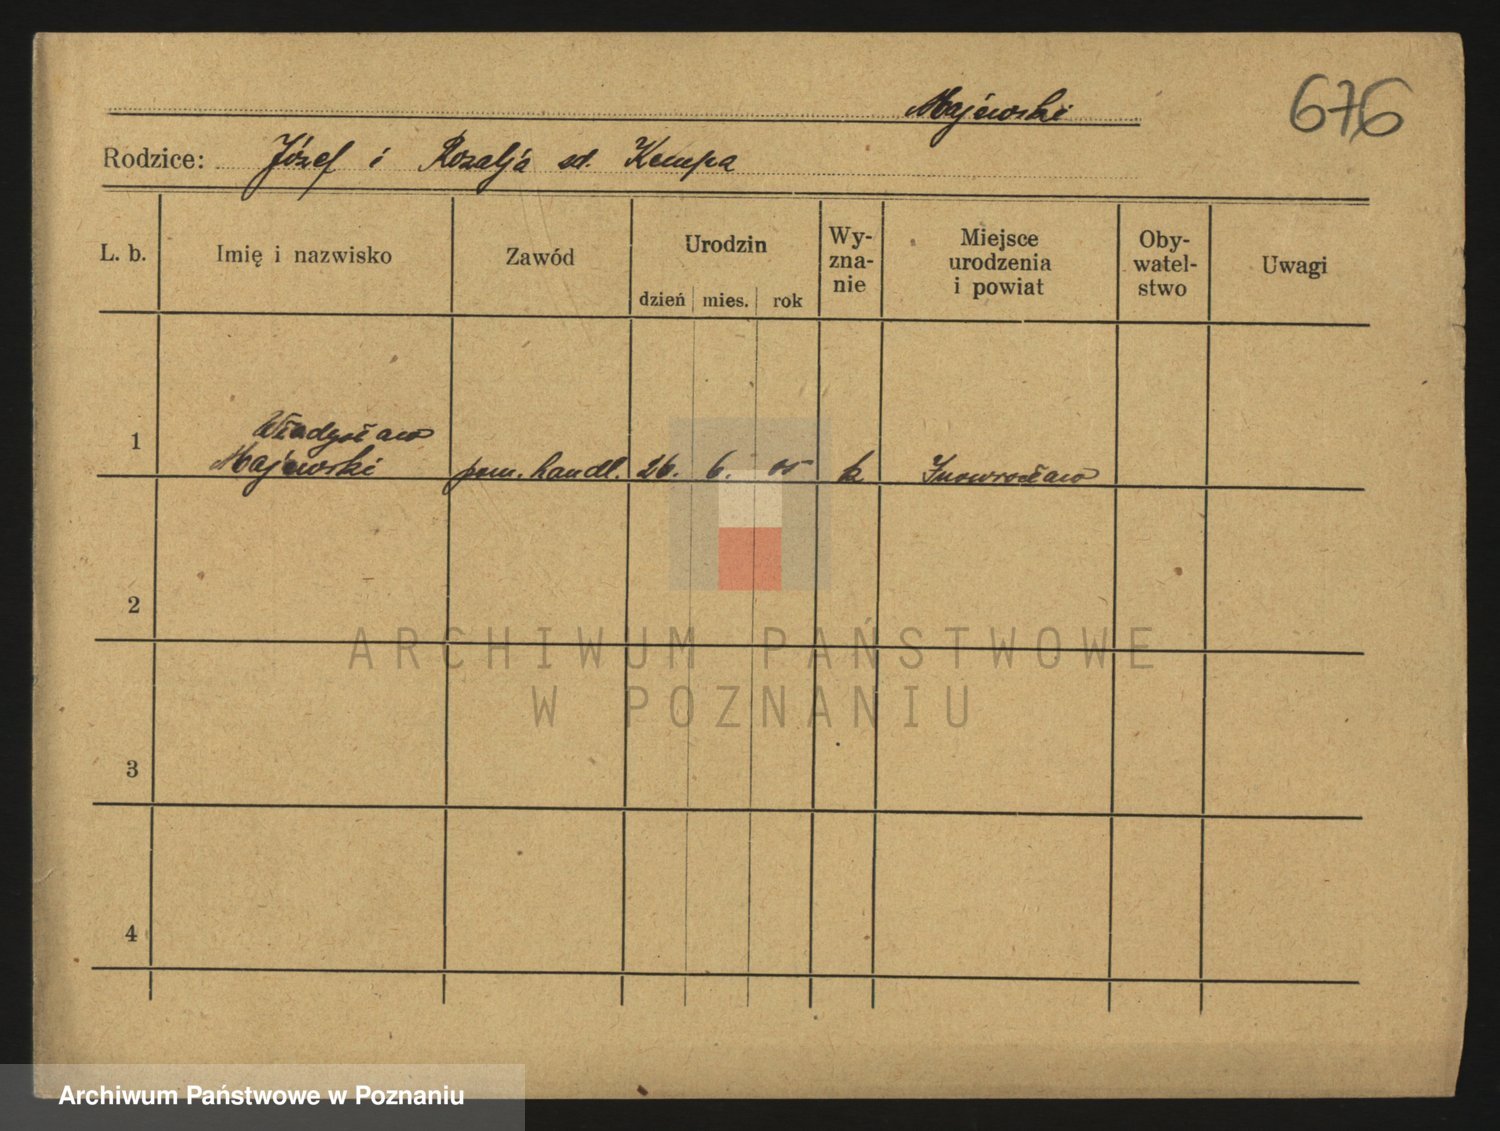 Majewski
676
Rodzice: Józef i Rozalja sd. Kempa
L. b.
Imię i nazwisko
Zawód
Urodzin
dzień mies. rok
Wy-
zna-
nie
Miejsce
urodzenia
i powiat
Oby-
watel-
stwo
Uwagi
Władysław
1 Majewski pom. handl. 26. 6. 05 k Inowrocław
2
ARCHIWUM PAŃSTWOWE
W POZNANIU
3
4
Archiwum Państwowe w Poznaniu